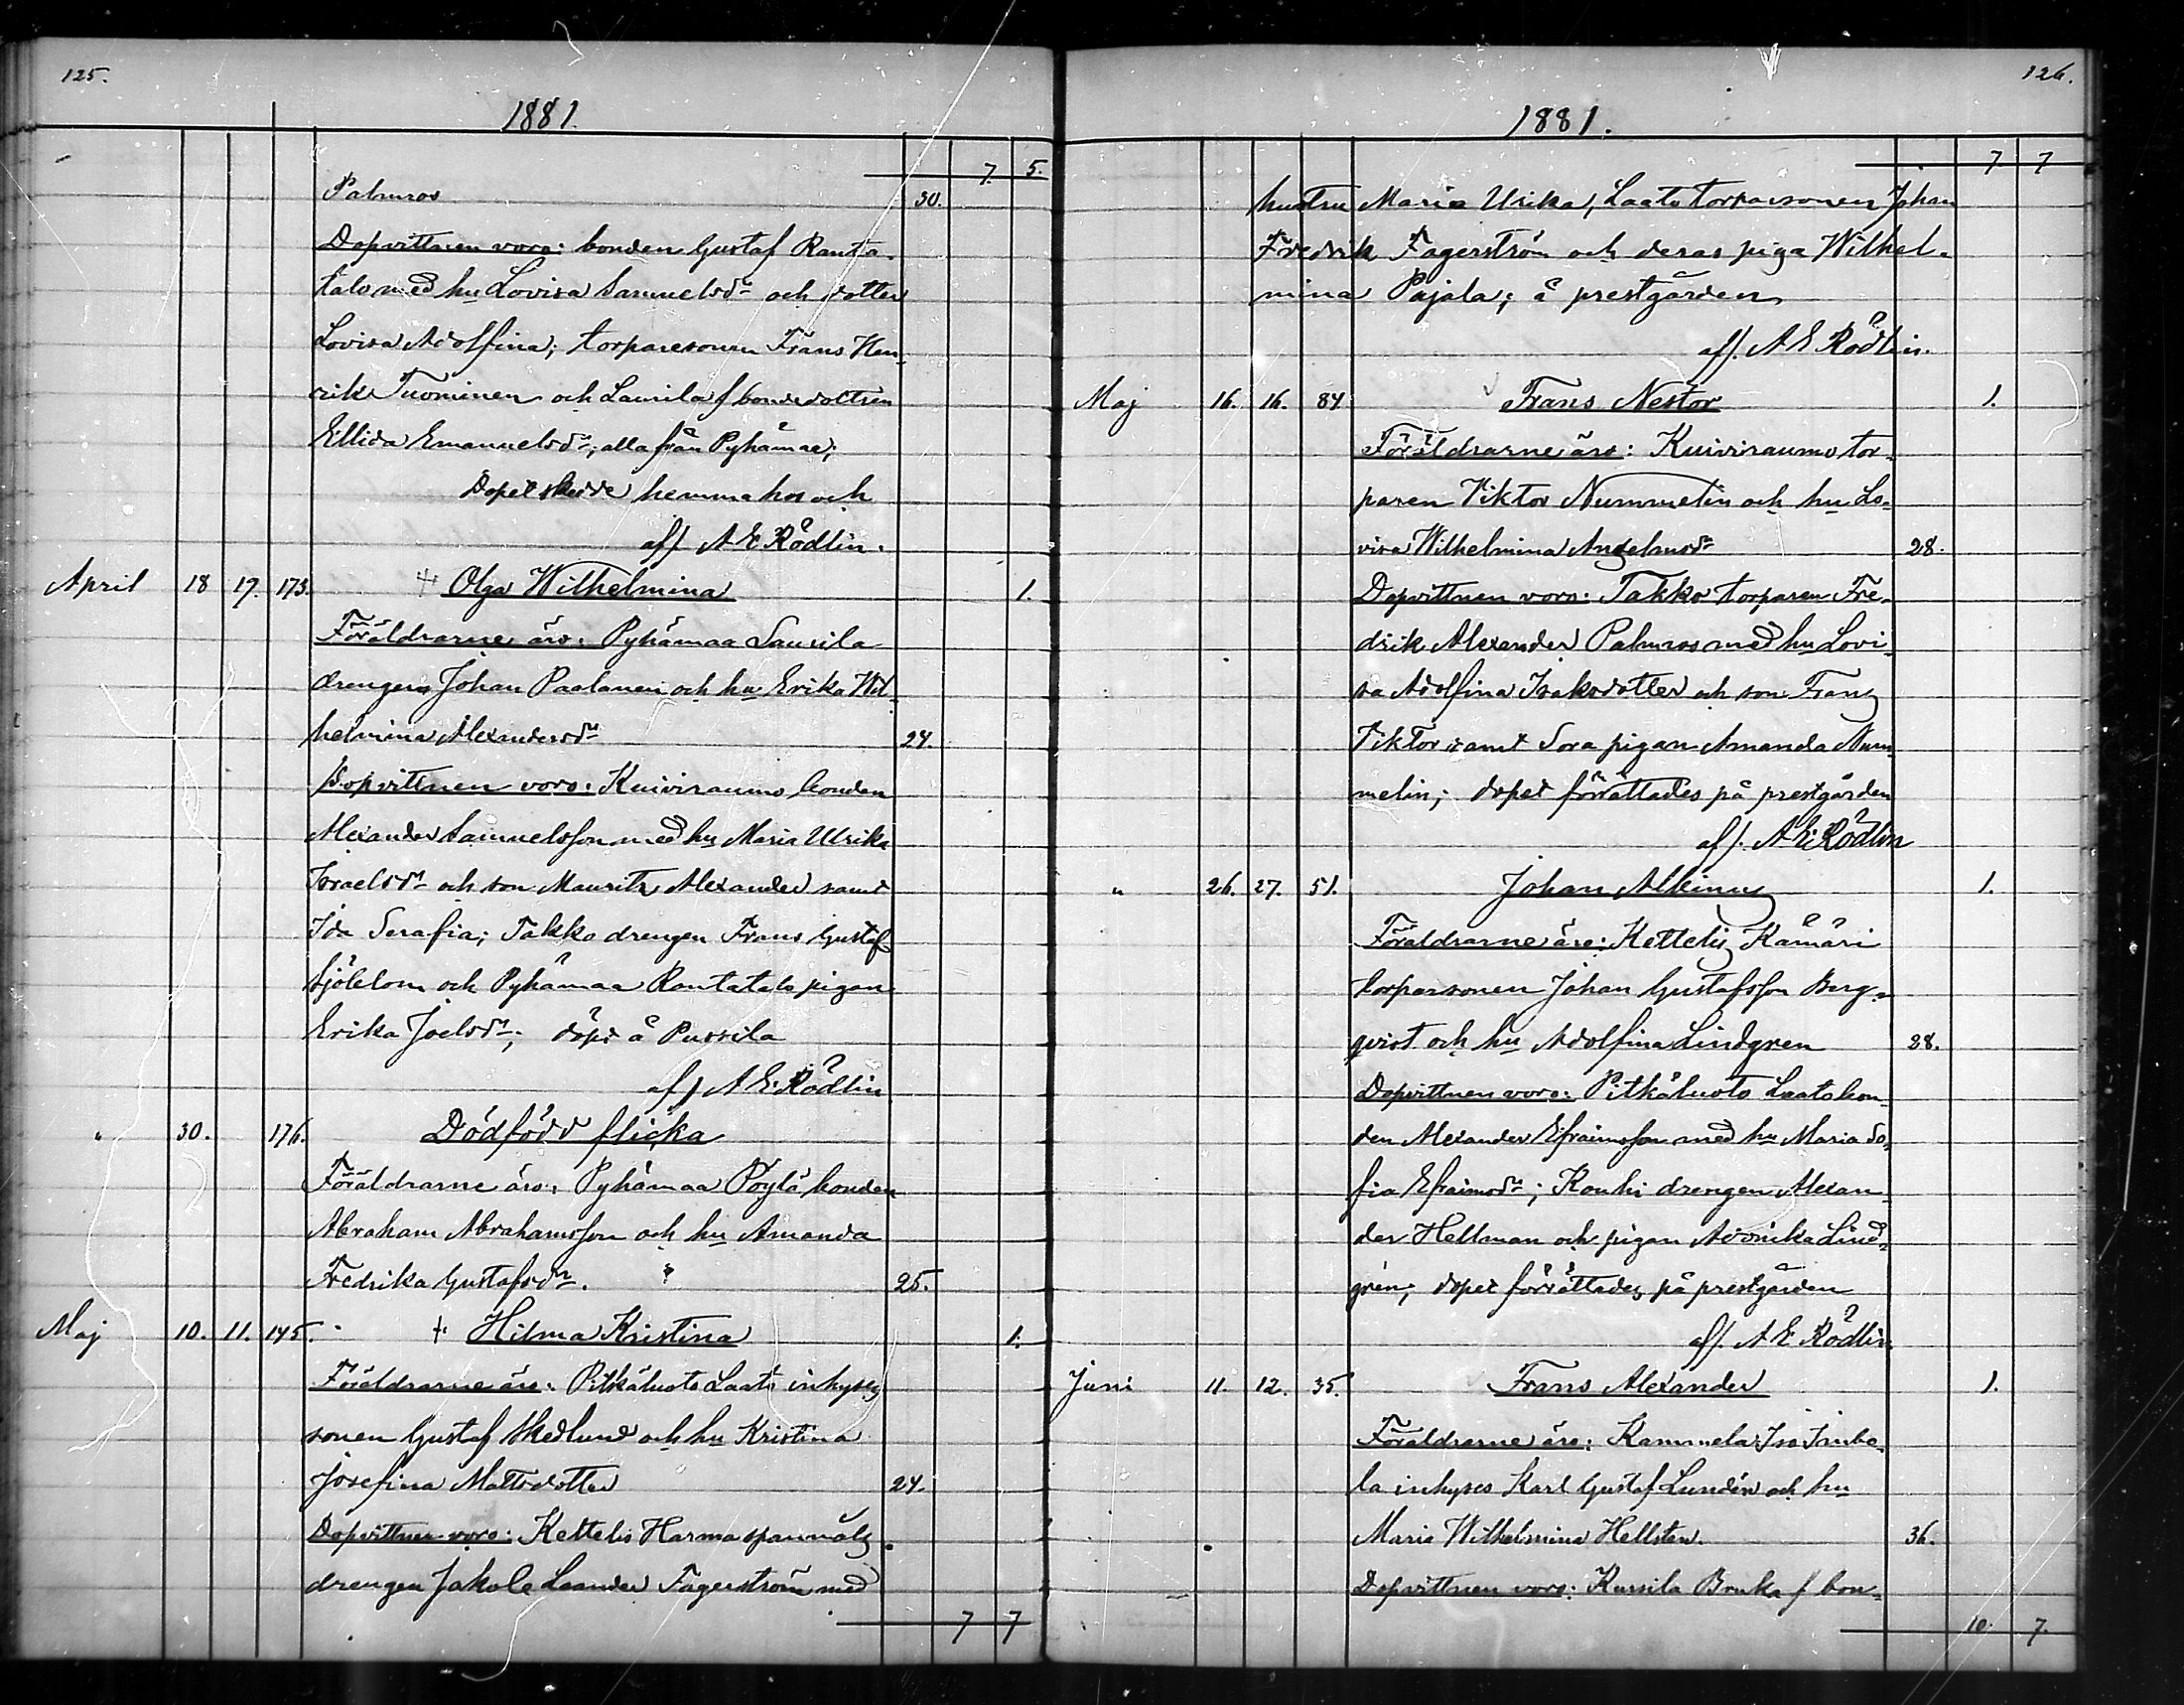 125.
1881.
7. 5.
Palmros 30.
Dopvittnen voro: bonden Gustaf Ranta-
talo med hu Lovisa Samuelsdr och dotter
Lovisa Adolfina; torparesonen Frans Hen-
rik Tuominen och Laurila f bondedottren
Ellida Emanuelsdr; alla från Pyhämaa;
Dopet skedde hemma hos och
af/. A E Rödlin.
April 18 17. 173. Olga Wilhelmina 1.
Föräldrarne äro: Pyhämaa Laurila
drengen Johan Paalanen och hu Erika Wil-
helmina Alexandersdr 24.
Dopvittnen voro: Kuivirauma bonden
Alexander Samuelsson med hu Maria Ulrika
Israelsdr och son Mauritz Alexander samt
Ida Serafia; Takko drengen Frans Gustaf
Sjöblom och Pyhämaa Rantatalo pigan
Erika Joelsdr; döpt å Pursila
af/. A E. Rödlin
" 30. 176. Dödfödd flicka
Föräldrarne äro: Pyhämaa Pöylä bonden
Abraham Abrahamsson och hu Amanda
Fredrika Gustafsdr. 25.
Maj 10. 11. 145. Hilma Kristina 1.
Föräldrarne äro: Pitkäluoto Laato inhyses
sonen Gustaf Skedlund och hu Kristina
Josefina Mattsdotter 24.
Dopvittnen voro: Kettelis Harma spannmåls
drengen Jakob Leander Fagerström med
7 7
126.
1881.
7. 7
hustru Maria Ulrika, Laato torparsonen Johan
Fredrik Fagerström och deras piga Wilhel-
mina Pajala; å prestgården
af/. A E Rödlin.
Maj 16. 16. 84 Frans Nestor 1.
Föräldrarne äro: Kuivirauma tor-
paren Viktor Nummelin och hu Lo-
visa Wilhelmina Anselmsdr 28.
Dopvittnen voro: Takko torparen Fre-
drik Alexander Palmros med hu Lovi-
sa Adolfina Isaksdotter och son Frans
Viktor samt Sora pigan Amanda Num-
melin; dopet förrättades på prestgården
af/. A E. Rödlin
" 26. 27. 51. Johan Albinus 1.
Föräldrarne äro: Kettelis Kämäri
torparsonen Johan Gustafsson Berg-
qvist och hu Adolfina Lindgren 28.
Dopvittnen voro: Pitkäluoto Laato bon-
den Alexander Efraimsson med hu Maria So-
fia Efraimsdr; Kouhi drengen Alexan-
der Hellman och pigan Lind-
gren; dopet förrättades på prestgården
af/. A E Rödlin.
Juni 11. 12. 35. Frans Alexander 1.
Föräldrarne äro: Kammela Iso
la inhyses Karl Gustaf Lundén och hu
Maria Wilhelmina Hellsten. 36.
Dopvittnen voro: Kursila f bon-
10. 7.